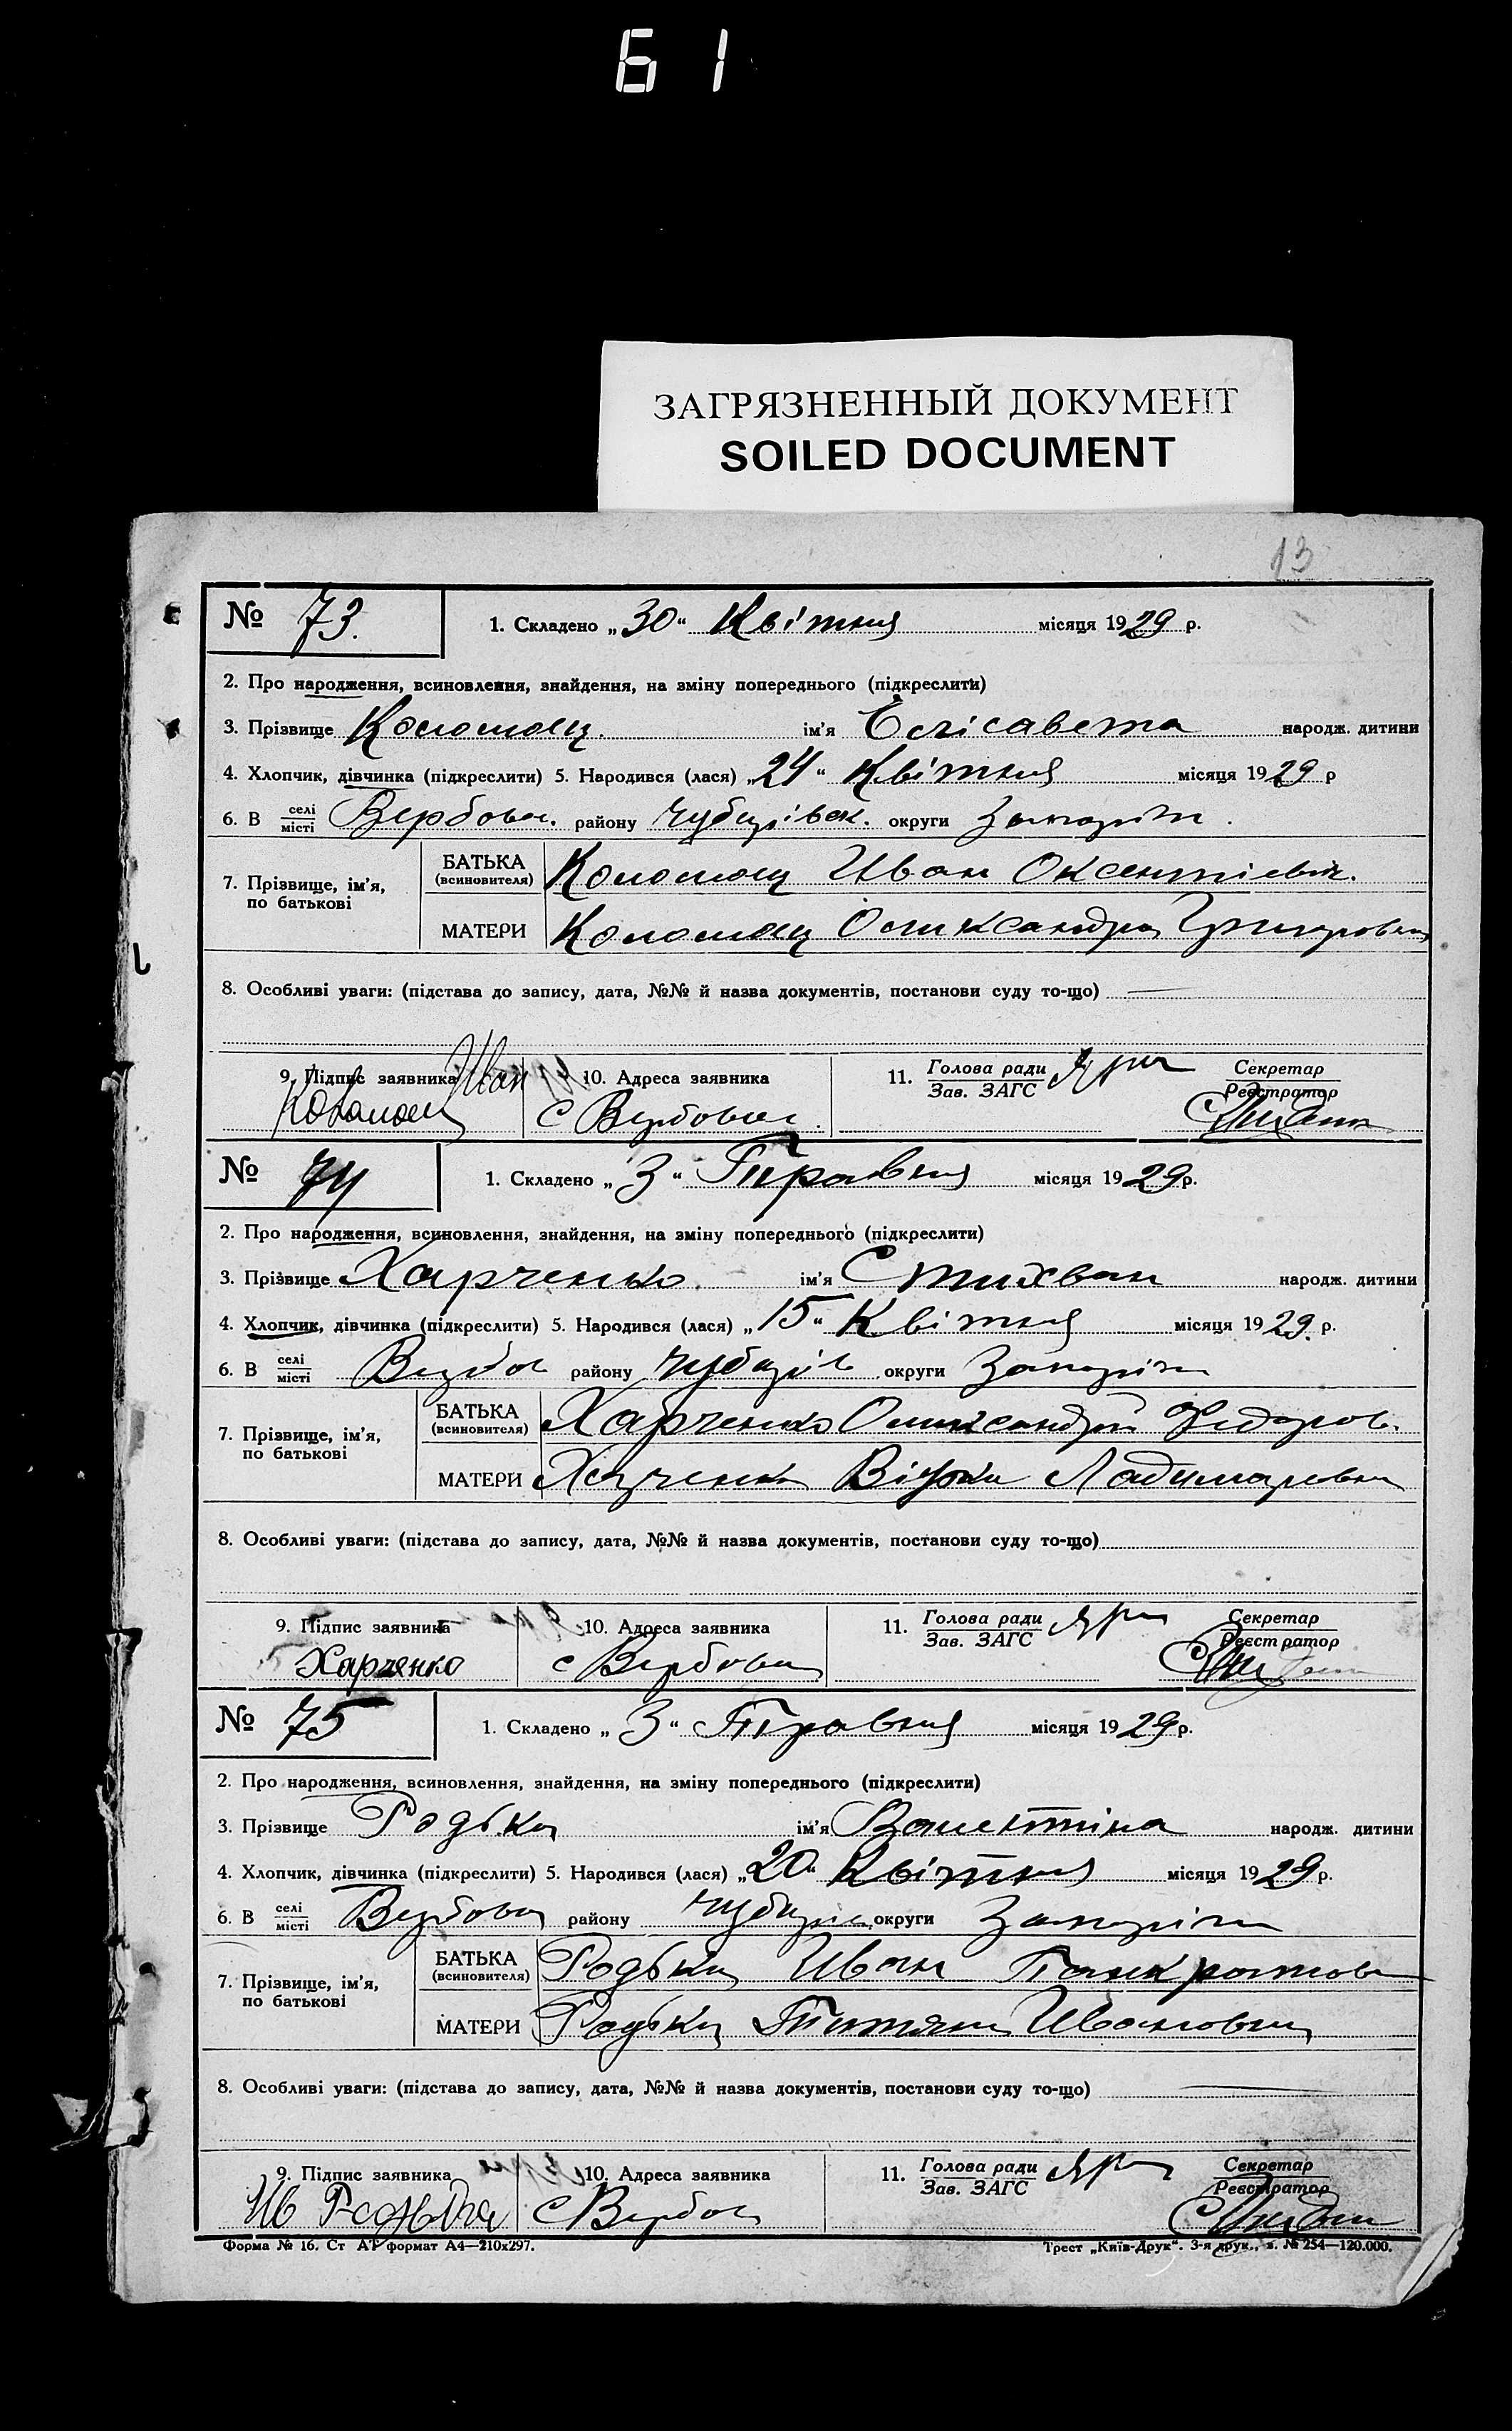 61
ЗАГРЯЗНЕННЫЙ ДОКУМЕНТ
SOILED DOCUMENT
13
№ 73. 1. Складено „30“ Квітня місяця 1929 р.
2. Про народження, всиновлення, знайдення, на зміну попереднього (підкреслити)
3. Прізвище Коломоец. ім'я Єлісавета народж. дитини
4. Хлопчик, дівчинка (підкреслити) 5. Народився (лася) „24“ Квітня місяця 1929 р
6. В селі місті Вербова. району Чубарівск. округи Запоріж.
7. Прізвище, ім'я, по батькові
БАТЬКА (всиновителя) Коломоец Иван Оксентіевич.
МАТЕРИ Коломоец Олександра Григоровна
8. Особливі уваги: (підстава до запису, дата, №№ й назва документів, постанови суду то-що)
9. Підпис заявника 10. Адреса заявника 11. Голова ради Зав. ЗАГС Секретар Реєстратор
Иван Коломоец с Вербова
№ 74 1. Складено „3“ Травня місяця 1929 р.
2. Про народження, всиновлення, знайдення, на зміну попереднього (підкреслити)
3. Прізвище Харченко ім'я Стихван народж. дитини
4. Хлопчик, дівчинка (підкреслити) 5. Народився (лася) „15“ Квітня місяця 1929. р.
6. В селі місті Вербов району Чубарів округи Запоріж
7. Прізвище, ім'я, по батькові
БАТЬКА (всиновителя) Харченко Олександр Федоров.
МАТЕРИ Харченко Ладимаровна
8. Особливі уваги: (підстава до запису, дата, №№ й назва документів, постанови суду то-що)
9. Підпис заявника 10. Адреса заявника 11. Голова ради Зав. ЗАГС Секретар Реєстратор
Харченко с Вербова
№ 75 1. Складено „3“ Травня місяця 1929 р.
2. Про народження, всиновлення, знайдення, на зміну попереднього (підкреслити)
3. Прізвище Родька ім'я Валентіна народж. дитини
4. Хлопчик, дівчинка (підкреслити) 5. Народився (лася) „20“ Квітня місяця 1929 р.
6. В селі місті Вербова району округи Запоріж
7. Прізвище, ім'я, по батькові
БАТЬКА (всиновителя) Родька Иван Панкратов
МАТЕРИ Родька Татяна Ивановна
8. Особливі уваги: (підстава до запису, дата, №№ й назва документів, постанови суду то-що)
9. Підпис заявника 10. Адреса заявника 11. Голова ради Зав. ЗАГС Секретар Реєстратор
Ив Родька с Вербова
Форма № 16. Ст А4 формат А4—210х297. Трест „Київ-Друк“. 3-я друк., з. № 254—120.000.